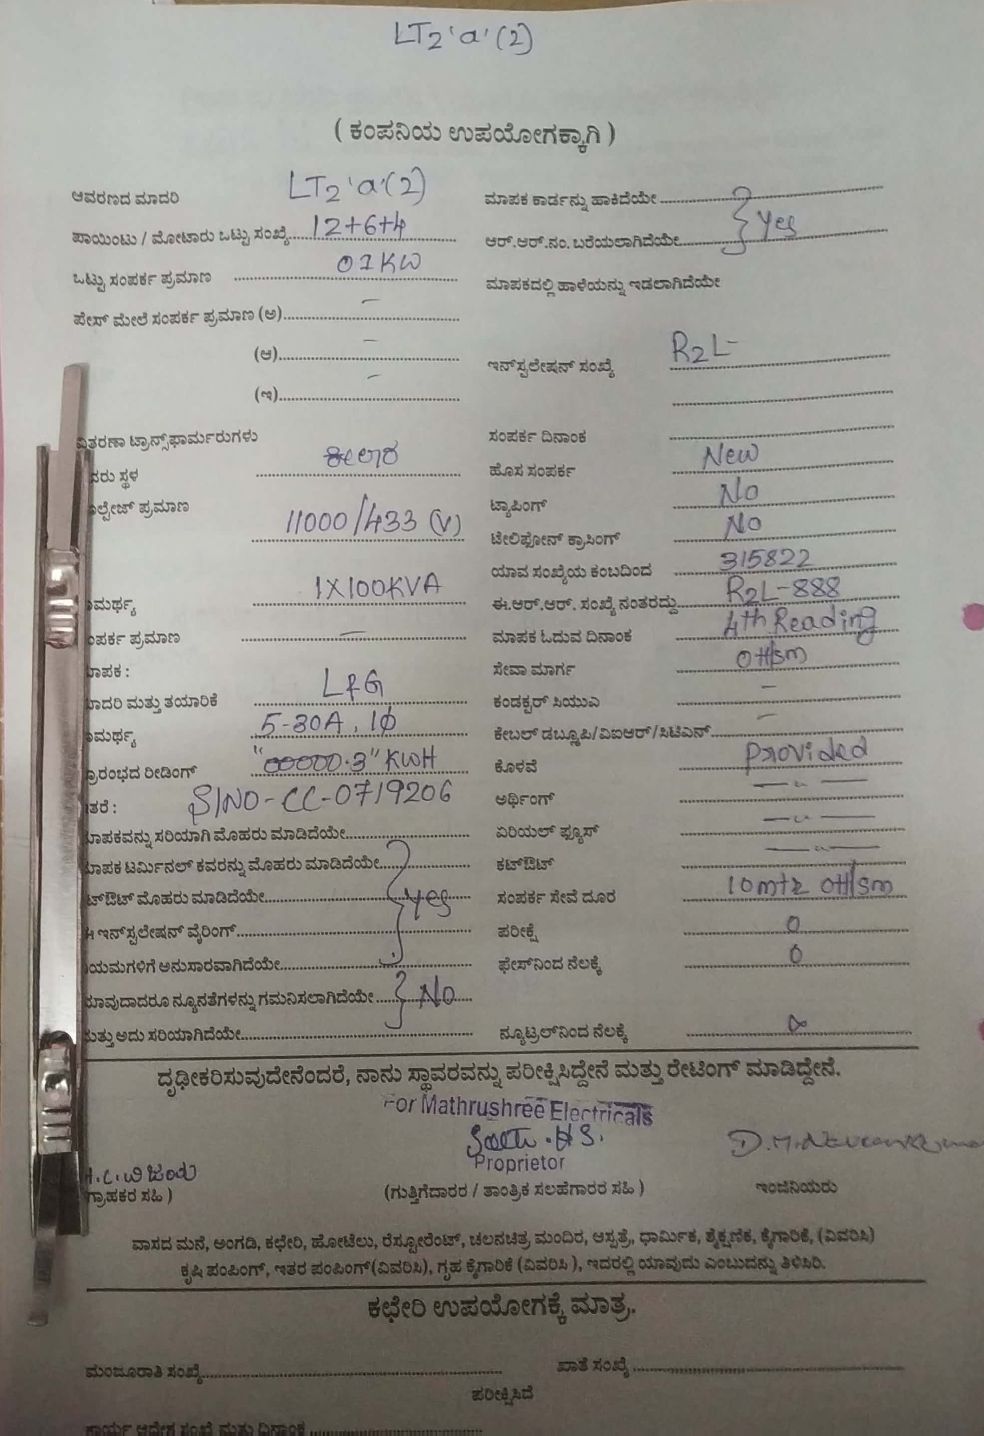 LT2 'a' (2)
( ಕಂಪನಿಯ ಉಪಯೋಗಕ್ಕಾಗಿ )
ಆವರಣದ ಮಾದರಿ LT2 'a' (2) ಮಾಪಕ ಕಾರ್ಡನ್ನು ಹಾಕಿದೆಯೇ
ಪಾಯಿಂಟು / ಮೋಟಾರು ಒಟ್ಟು ಸಂಖ್ಯೆ 12+6+4 ಆರ್.ಆರ್.ನಂ. ಬರೆಯಲಾಗಿದೆಯೇ } Yes
ಒಟ್ಟು ಸಂಪರ್ಕ ಪ್ರಮಾಣ 01 KW ಮಾಪಕದಲ್ಲಿ ಹಾಳೆಯನ್ನು ಇಡಲಾಗಿದೆಯೇ
ಪೇಸ್ ಮೇಲೆ ಸಂಪರ್ಕ ಪ್ರಮಾಣ (ಅ) –
(ಆ) – ಇನ್‌ಸ್ಟಲೇಷನ್ ಸಂಖ್ಯೆ R2L-
(ಇ) –
ವಿತರಣಾ ಟ್ರಾನ್ಸ್‌ಫಾರ್ಮರುಗಳು ಸಂಪರ್ಕ ದಿನಾಂಕ
ಸ್ಥಳ ಹೊಸ ಸಂಪರ್ಕ New
ಪ್ರಮಾಣ 11000/433 (V) ಟ್ಯಾಪಿಂಗ್ No
ಟೇಲಿಫೋನ್ ಕ್ರಾಸಿಂಗ್ No
ಯಾವ ಸಂಖ್ಯೆಯ ಕಂಬದಿಂದ 315822
1X100KVA ಈ.ಆರ್.ಆರ್. ಸಂಖ್ಯೆ ನಂತರದ್ದು R2L-888
ಪ್ರಮಾಣ – ಮಾಪಕ ಓದುವ ದಿನಾಂಕ 4th Reading
ಸೇವಾ ಮಾರ್ಗ OH/sm
ಮತ್ತು ತಯಾರಿಕೆ L&G ಕಂಡಕ್ಟರ್ ಸಿಯುಎ –
5-30A, 1ϕ ಕೇಬಲ್ ಡಬ್ಲೂಪಿ/ವಿಐಆರ್/ಸಿಟಿಎನ್ –
ರೀಡಿಂಗ್ "00000.3" KWH ಕೊಳವೆ Provided
S/NO-CC-0719206 ಅರ್ಥಿಂಗ್ —"—
ಸರಿಯಾಗಿ ಮೊಹರು ಮಾಡಿದೆಯೇ ಏರಿಯಲ್ ಫ್ಯೂಸ್ —"—
ಟರ್ಮಿನಲ್ ಕವರನ್ನು ಮೊಹರು ಮಾಡಿದೆಯೇ ಕಟ್‌ಔಟ್ —"—
ಮೊಹರು ಮಾಡಿದೆಯೇ } Yes ಸಂಪರ್ಕ ಸೇವೆ ದೂರ 10mtr OH/sm
ಇನ್‌ಸ್ಟಲೇಷನ್ ವೈರಿಂಗ್ ಪರೀಕ್ಷೆ 0
ಅನುಸಾರವಾಗಿದೆಯೇ ಫೇಸ್‌ನಿಂದ ನೆಲಕ್ಕೆ 0
ನ್ಯೂನತೆಗಳನ್ನು ಗಮನಿಸಲಾಗಿದೆಯೇ } No
ಅದು ಸರಿಯಾಗಿದೆಯೇ ನ್ಯೂಟ್ರಲ್‌ನಿಂದ ನೆಲಕ್ಕೆ
ದೃಢೀಕರಿಸುವುದೇನೆಂದರೆ, ನಾನು ಸ್ಥಾವರವನ್ನು ಪರೀಕ್ಷಿಸಿದ್ದೇನೆ ಮತ್ತು ರೇಟಿಂಗ್ ಮಾಡಿದ್ದೇನೆ.
For Mathrushree Electricals
Proprietor
ಗ್ರಾಹಕರ ಸಹಿ ) (ಗುತ್ತಿಗೆದಾರರ / ತಾಂತ್ರಿಕ ಸಲಹೆಗಾರರ ಸಹಿ ) ಇಂಜಿನಿಯರು
ವಾಸದ ಮನೆ, ಅಂಗಡಿ, ಕಛೇರಿ, ಹೋಟೆಲು, ರೆಸ್ಟೋರೆಂಟ್, ಚಲನಚಿತ್ರ ಮಂದಿರ, ಆಸ್ಪತ್ರೆ, ಧಾರ್ಮಿಕ, ಶೈಕ್ಷಣಿಕ, ಕೈಗಾರಿಕೆ, (ವಿವರಿಸಿ)
ಕೃಷಿ ಪಂಪಿಂಗ್, ಇತರ ಪಂಪಿಂಗ್(ವಿವರಿಸಿ), ಗೃಹ ಕೈಗಾರಿಕೆ (ವಿವರಿಸಿ), ಇದರಲ್ಲಿ ಯಾವುದು ಎಂಬುದನ್ನು ತಿಳಿಸಿರಿ.
ಕಛೇರಿ ಉಪಯೋಗಕ್ಕೆ ಮಾತ್ರ.
ಮಂಜೂರಾತಿ ಸಂಖ್ಯೆ ಖಾತೆ ಸಂಖ್ಯೆ
ಪರೀಕ್ಷಿಸಿದೆ
ಕಾರ್ಯ ಆದೇಶ ಸಂಖ್ಯೆ ಮತ್ತು ದಿನಾಂಕ